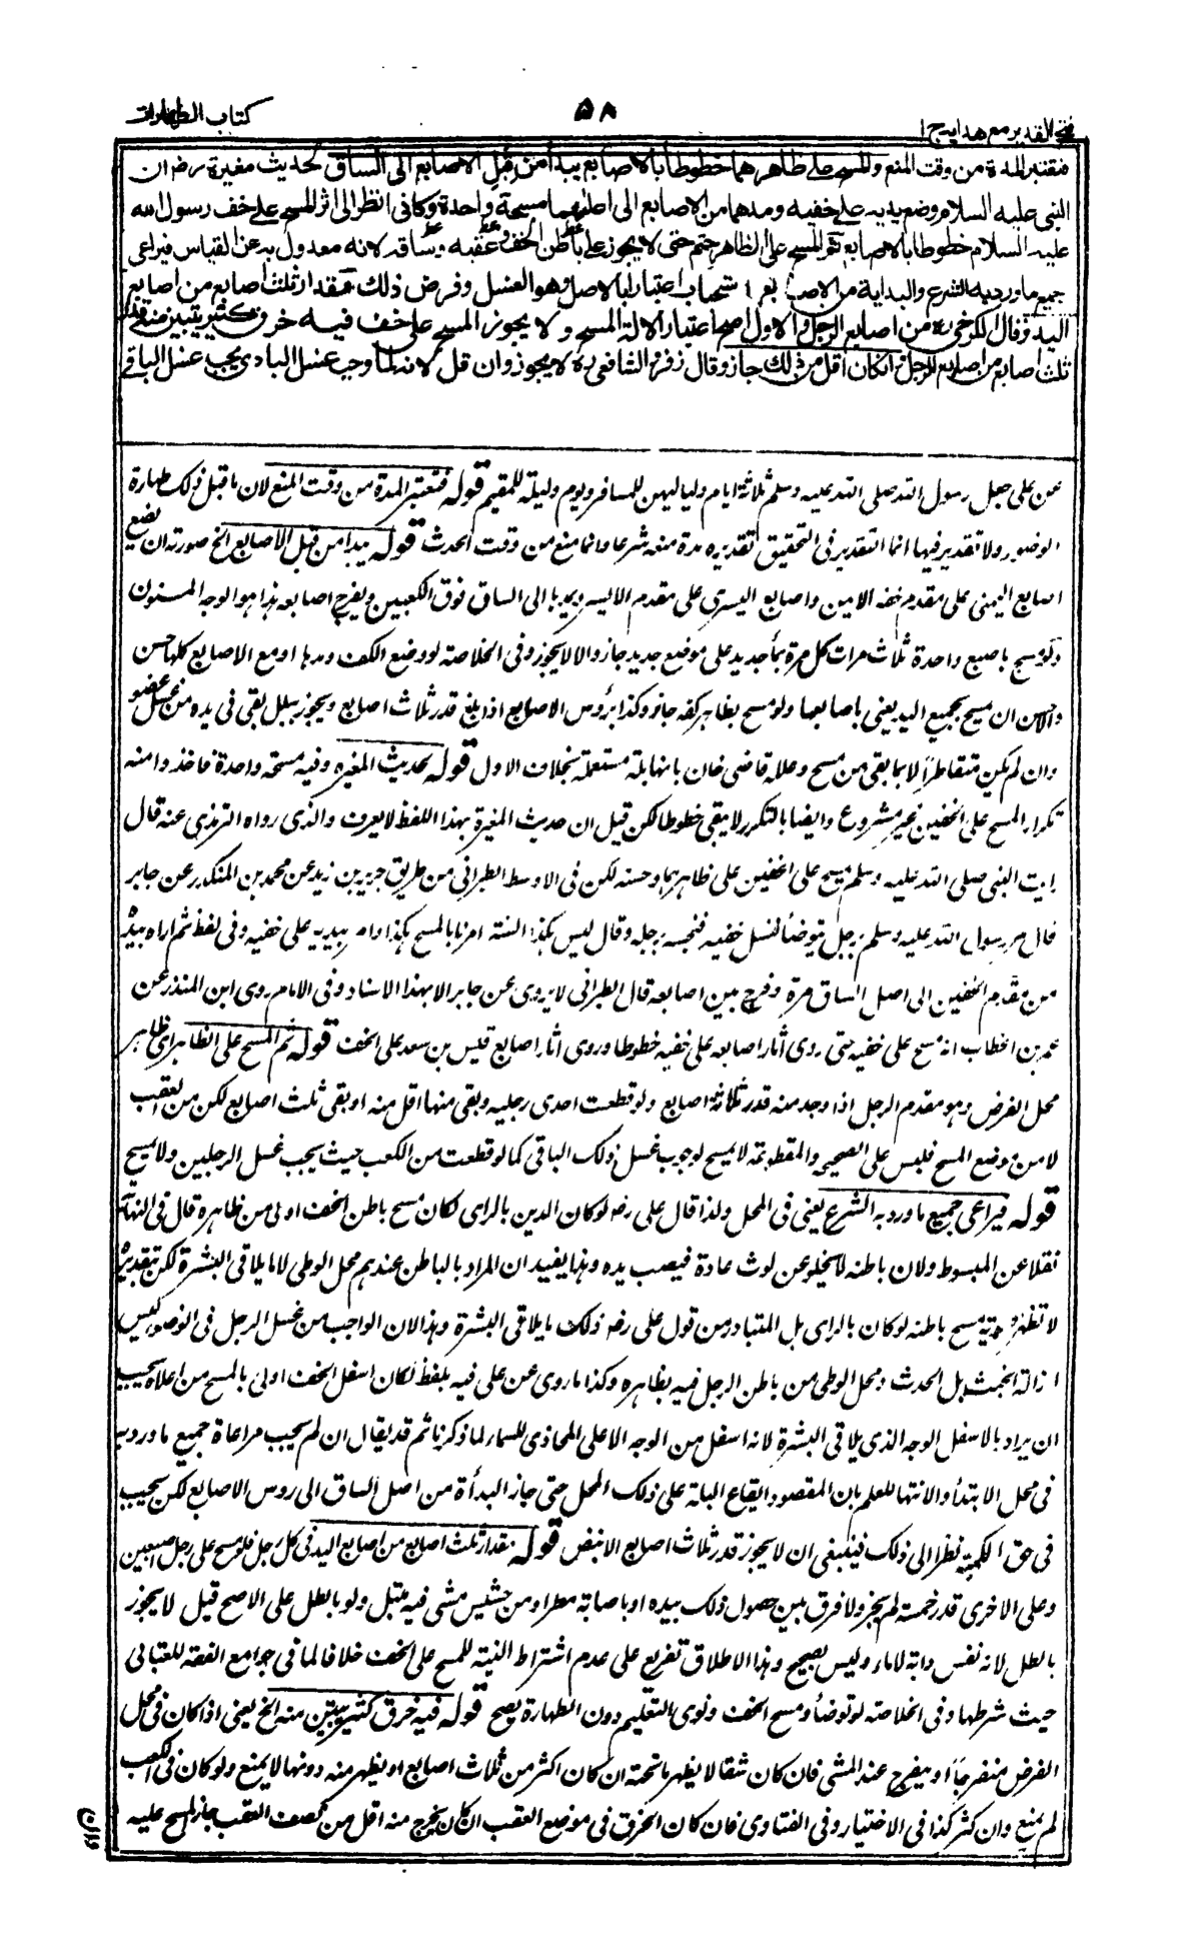 كتاب الطهارات
۵۸
فتح القدير مع هدايه ج ١
فتعتبر المدة من وقت المنع والمسح على ظاهرهما خطوطا بالاصابع يبدأ من قبل الاصابع الى الساق لحديث مغيرة رض ان
النبى عليه السلام وضع يديه على خفيه ومدهما من الاصابع الى اعلاهما مسحة واحدة وكانى انظر الى اثر المسح على خف رسول الله
عليه السلام خطوطا بالاصابع ثم المسح على الظاهر حتم حتى لا يجوز على باطن الخف وعقبه وساقه لانه معدول به عن القياس فيراعى
جميع ما ورد به الشرع والبداية من الاصابع استحباب اعتبارا بالاصل وهو الغسل وفرض ذلك مقدار ثلث اصابع من اصابع
اليد وقال الكرخى ره من اصابع الرجل والاول اصح اعتبارا لالة المسح ولا يجوز المسح على خف فيه خرق كثير يتبين منه قدر
ثلث اصابع من اصابع الرجل وان كان اقل من ذلك جاز وقال زفر والشافعى ره لا يجوز وان قل لانه لما وجب غسل البادى يجب غسل الباقى
عن على جعل رسول الله صلى الله عليه وسلم ثلاثة ايام ولياليهن للمسافر ويوم وليلة للمقيم قوله فتعتبر المدة من وقت المنع لان ما قبل ذلك طهارة
الوضوء ولا تقدير فيها انما التقدير فى التحقيق تقدير مدة منعه شرعا وانما منع من وقت الحدث قوله يبدا من قبل الاصابع الخ صورته ان يضع
اصابع اليمنى على مقدم خفه الايمن واصابع اليسرى على مقدم الايسر ويمدهما الى الساق فوق الكعبين ويفرج اصابعه هذا هو الوجه المسنون
ولو مسح باصبع واحدة ثلاث مرات كل مرة بماء جديد على موضع جديد جاز والا لا يجوز وفى الخلاصة لو وضع الكف ومدها او مع الاصابع كلها حسن
والاحسن ان يمسح بجميع اليد يعنى باصابعها ولو مسح بظاهر كفه جاز وكذا برؤس الاصابع اذا بلغ قدر ثلاث اصابع ويجوز ببلل بقى فى يده من غسل عضو
وان لم يكن متقاطرا لا بما بقى من مسح وعلله قاضى خان بانها بلة مستعملة بخلاف الاول قوله لحديث المغيرة وفيه مسحة واحدة فاخذوا منه
تكرار المسح على الخفين غير مشروع وايضا بالتكرر لا يبقى خطوطا لكن قيل ان حديث المغيرة بهذا اللفظ لا يعرف والذى رواه الترمذى عنه قال
رايت النبى صلى الله عليه وسلم يمسح على الخفين على ظاهرهما وحسنه لكن فى الاوسط الطبرانى من طريق جرير بن يزيد عن محمد بن المنكدر عن جابر
قال مر رسول الله عليه وسلم برجل يتوضأ لغسل خفيه فنخسه برجله وقال ليس هكذا السنة امرنا بالمسح هكذا وامر بيديه على خفيه وفى لفظ ثم اراه بيده
من مقدم الخفين الى اصل الساق مرة وفرج بين اصابعه قال الطبرانى لا يروى عن جابر الا بهذا الاسناد وفى الامام روى ابن المنذر عن
عمر بن الخطاب انه مسح على خفيه حتى روى آثار اصابعه على خفيه خطوطا وروى آثار اصابع قيس بن سعد على الخف قوله ثم المسح على الظاهر اى ظاهر
محل الفرض وهو مقدم الرجل اذا وجد منه قدر ثلاثة اصابع ولو قطعت احدى رجليه وبقى منها اقل منه او بقى ثلث اصابع لكن من العقب
لا من موضع المسح فلبس على الصحيح والمقطوعة لا يمسح لوجوب غسل ذلك الباقى كما لو قطعت من الكعب حيث يجب غسل الرجلين ولا يمسح
قوله فيراعى جميع ما ورد به الشرع يعنى فى المحل ولذا قال على رضه لو كان الدين بالراى لكان مسح باطن الخف اولى من ظاهره قال فى النهاية
نقلا عن المبسوط ولان باطنه لا يخلو عن لوث عادة فيصب يده وهذا يفيد ان المراد بالباطن عندهم محل الوطى لا ما يلاقى البشرة لكن بتقديره
لا تظهر اولوية مسح باطنه لو كان بالراى بل المتبادر من قول على رضه ذلك ما يلاقى البشرة وهذا لان الواجب من غسل الرجل فى الوضوء ليس
ازالة الخبث بل الحدث ومحل الوطى من باطن الرجل فيه بظاهره وكذا ما روى عن على فيه بلفظ لكان اسفل الخف اولى بالمسح من اعلاه يجب
ان يراد بالاسفل الوجه الذى يلاقى البشرة لانه اسفل من الوجه الاعلى المحاذى للسماء لما ذكرنا ثم قد يقال ان لم يجب مراعاة جميع ما ورد به
فى محل الابتداء والانتهاء للعلم بان المقصود ايقاع البلة على ذلك المحل حتى جاز البدأة من اصل الساق الى روس الاصابع لكن يجب
فى حق الكمية نظرا الى ذلك فينبغى ان لا يجوز قدر ثلاث اصابع الا بنص قوله مقدار ثلث اصابع من اصابع اليد فى كل رجل فلو مسح على رجل اصبعين
وعلى الاخرى قدر خمسة لم يجز ولا فرق بين حصول ذلك بيده او باصابة مطر او من حشيش مشى فيه مبتل ولو بالطل على الاصح قيل لا يجوز
بالطل لانه نفس دابة لا ماء وليس بصحيح وهذا الاطلاق تفريع على عدم اشتراط النية للمسح على الخف خلافا لما فى جوامع الفقه للعتابى
حيث شرطها وفى الخلاصة لو توضأ ومسح الخف ونوى التعليم دون الطهارة يصح قوله فيه خرق كثير يتبين منه الخ يعنى اذا كان فى محل
الفرض منفرجا او ينفرج عند المشى فان كان شقا لا يظهر ما تحته ان كان اكثر من ثلاث اصابع او يظهر منه دونها لا يمنع ولو كان فى الكعب
لم يمنع وان كثر كذا فى الاختيار وفى الفتاوى فان كان الخرق فى موضع العقب ان كان يخرج منه اقل من نصف العقب جاز المسح عليه
وان